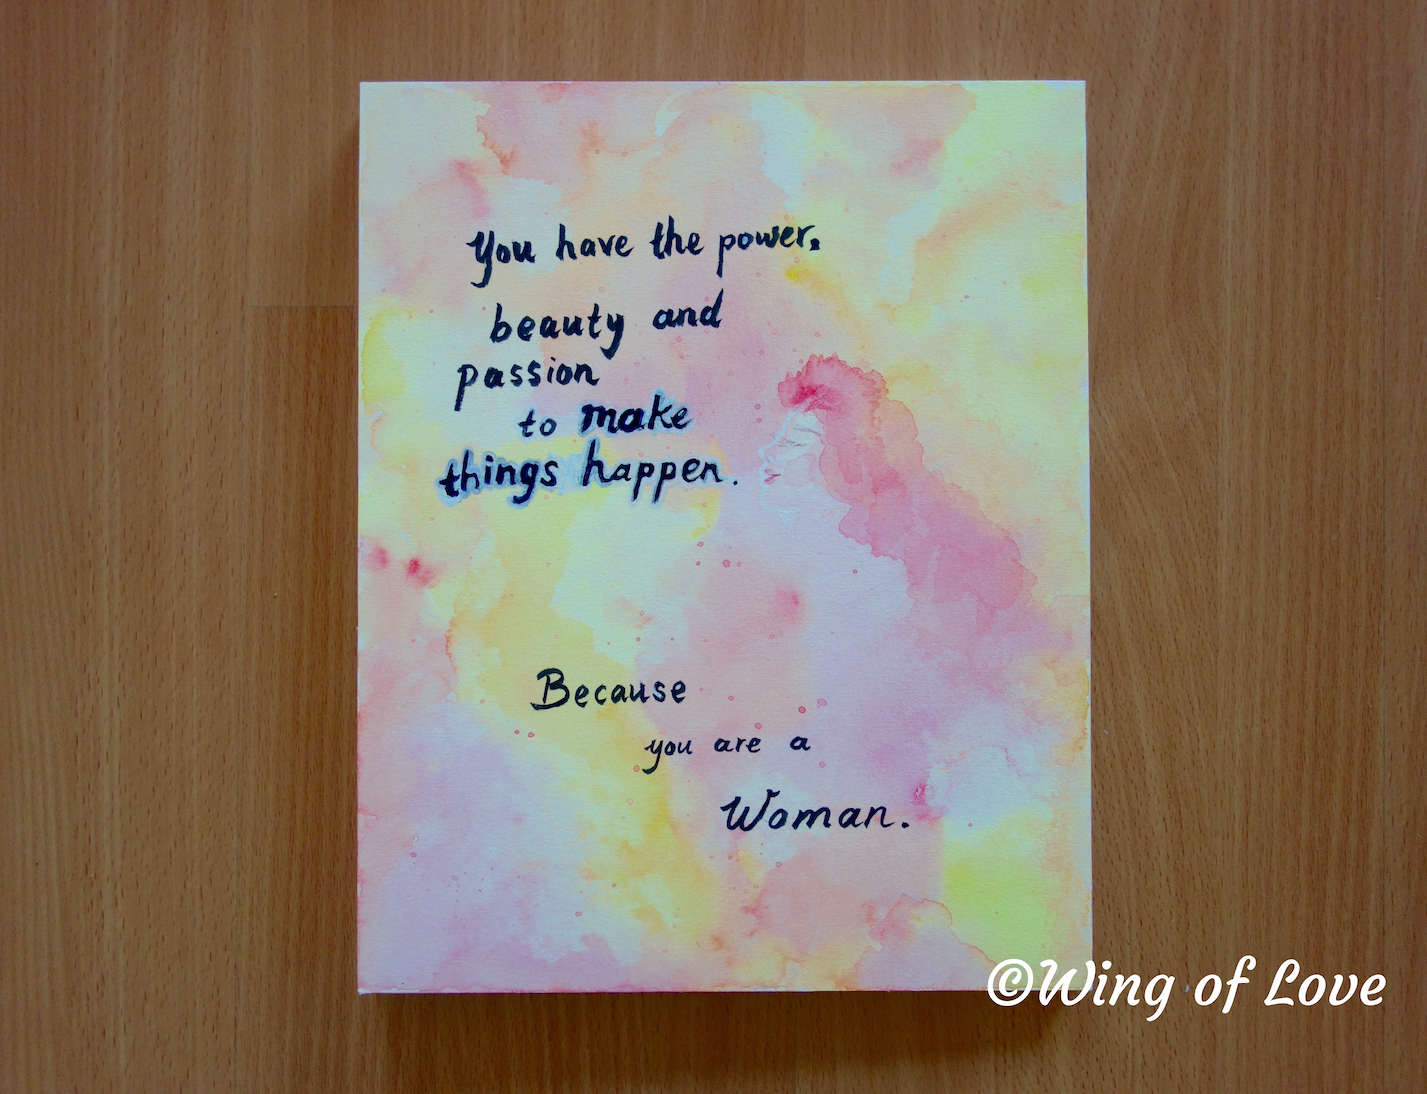 You have the power,
beauty and
passion
to make
things happen.
Because
you are a
Woman.
©Wing of Love